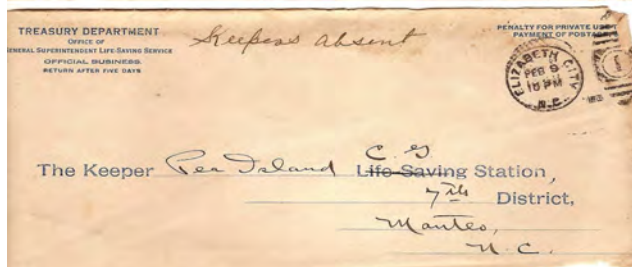 TREASURY DEPARTMENT
OFFICE OF
GENERAL SUPERINTENDENT LIFE-SAVING SERVICE
OFFICIAL BUSINESS.
RETURN AFTER FIVE DAYS
Keepers absent
PENALTY FOR PRIVATE USE
PAYMENT OF POSTAGE
ELIZABETH CITY
FEB 9
10 PM
N.C.
The Keeper Pea Island C G Life-Saving Station,
7th District,
Manteo,
N.C.